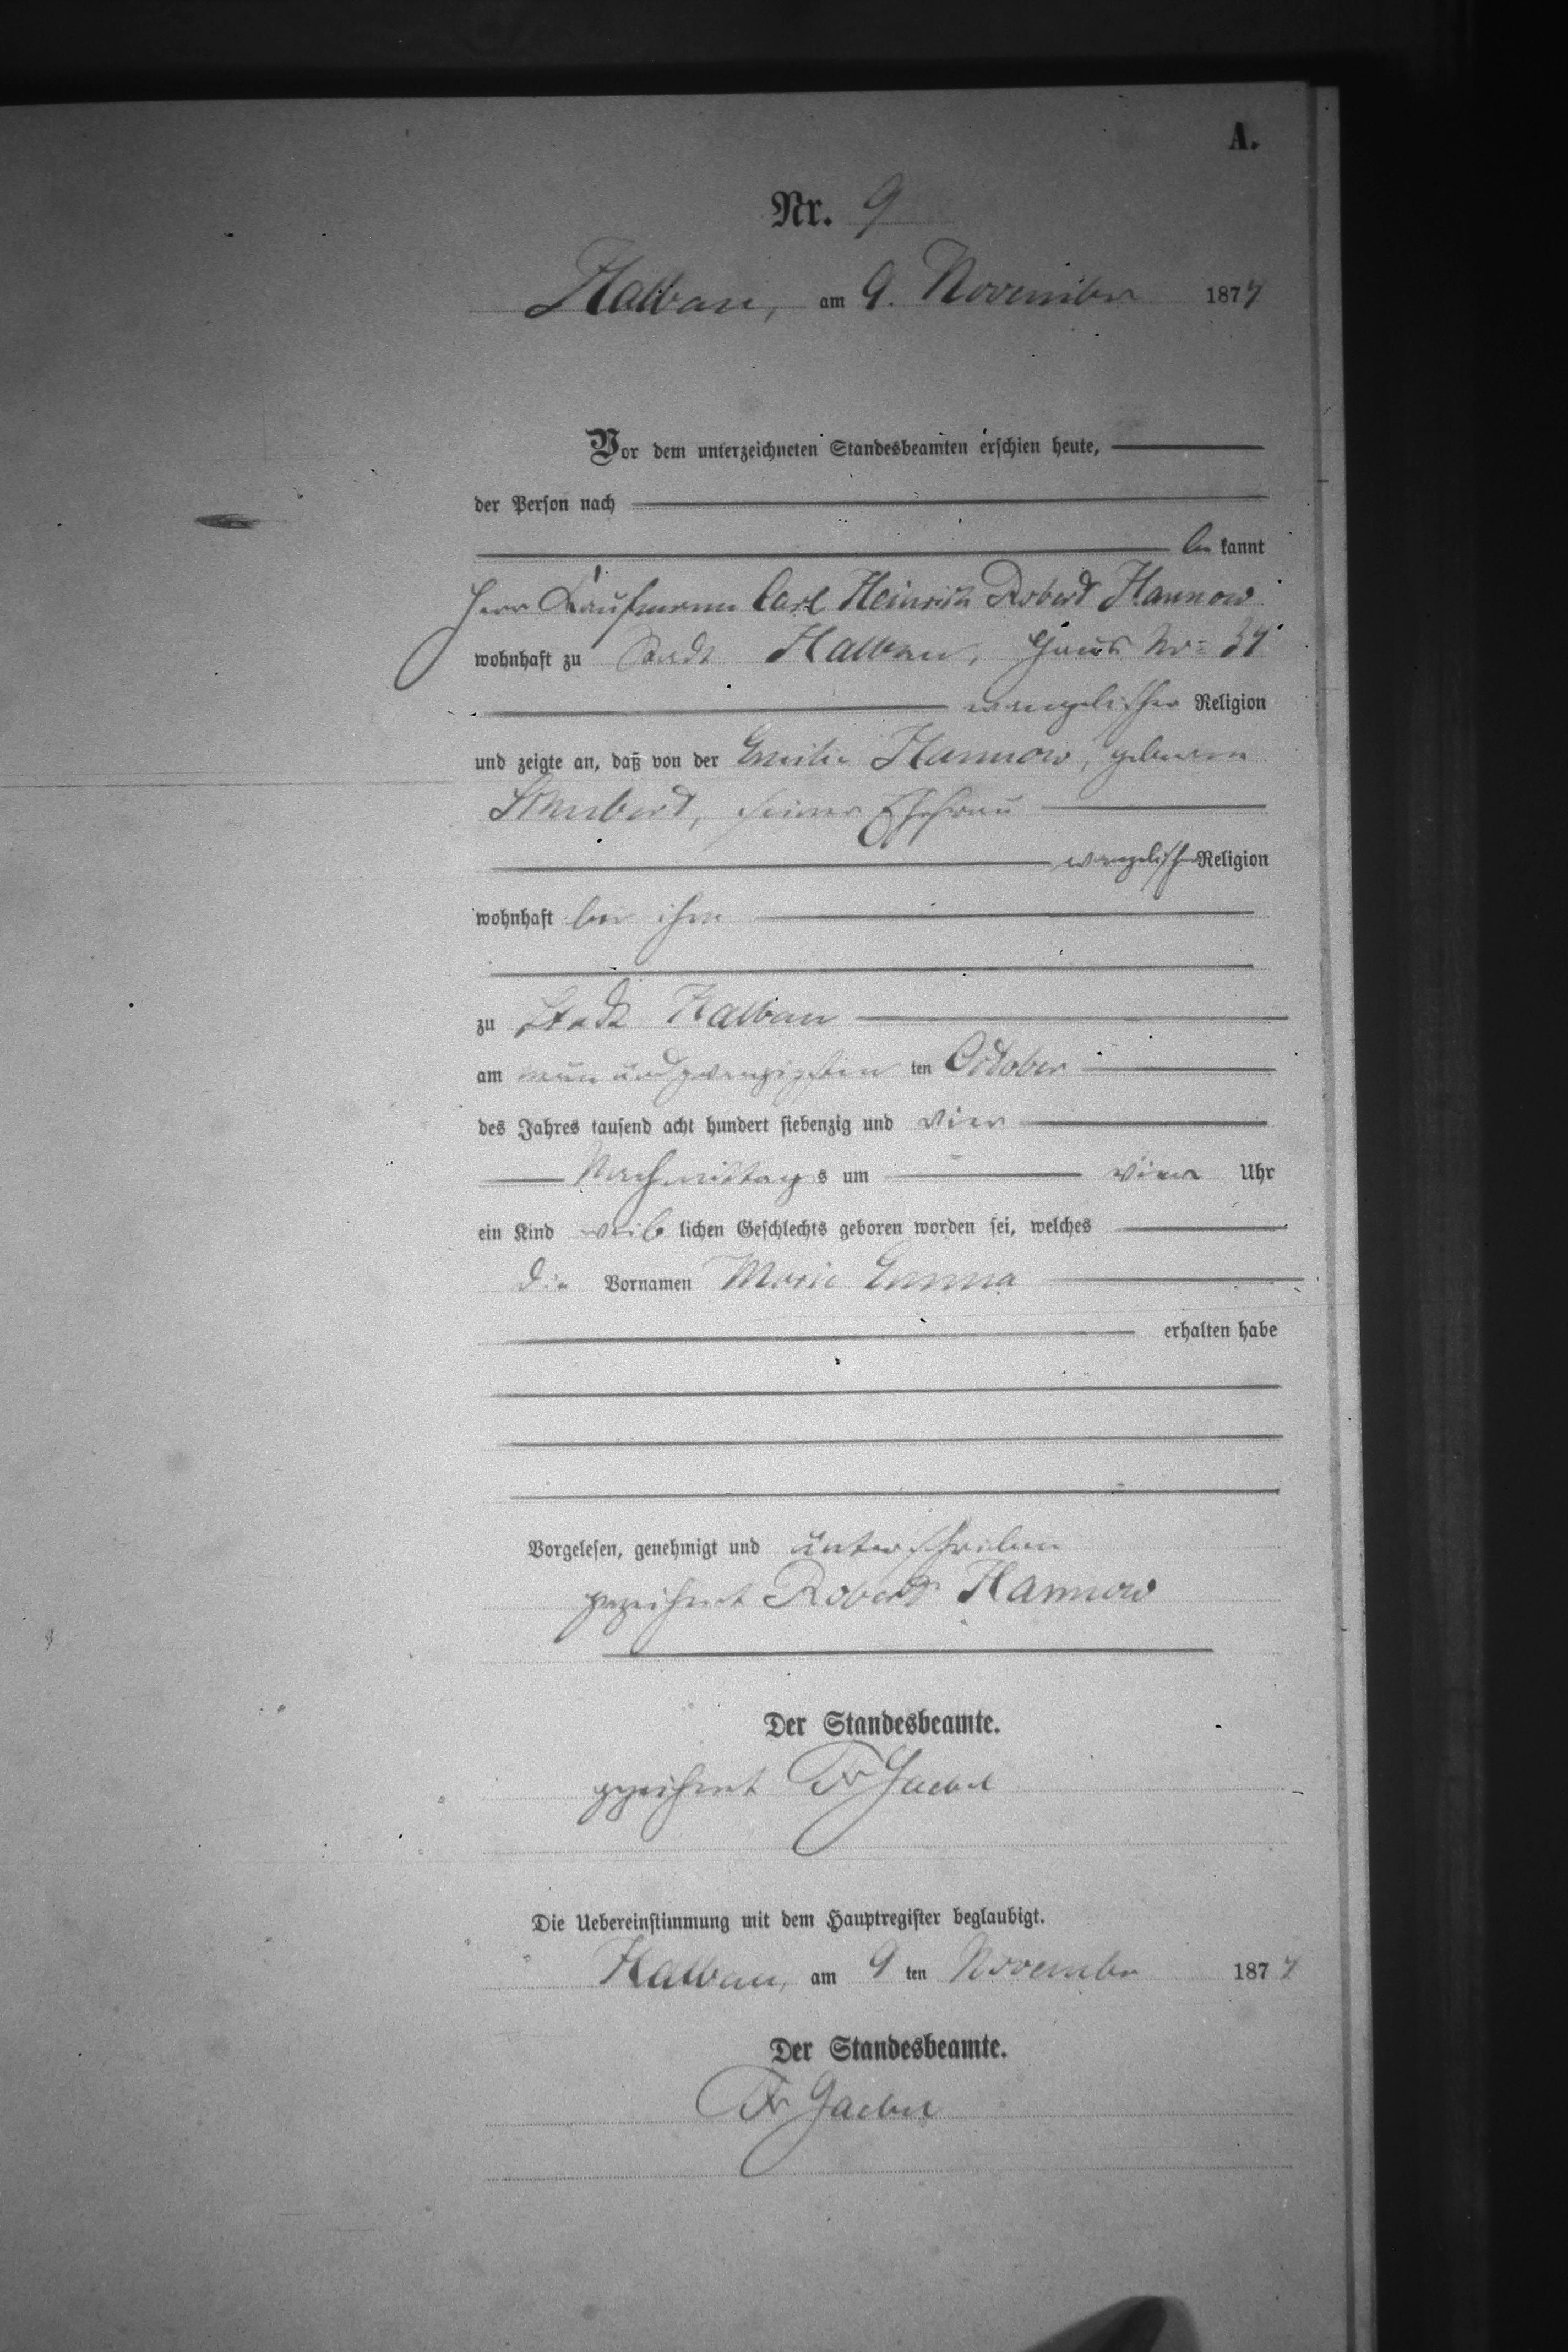 A.
Nr. 9
Halbau, am 9. November 1874
Vor dem unterzeichneten Standesbeamten erschien heute,
der Person nach
be kannt
Herr Kaufmann Carl Heinrich Robert Hannow
wohnhaft zu Stadt Halbau, Haus No= 34
evangelischer Religion
und zeigte an, daß von der Emilie Hannow, geborene
Schubert, seiner Ehefrau
evangelischer Religion
wohnhaft bei ihm
zu Stadt Halbau
am neun und zwanzigsten ten October
des Jahres tausend acht hundert siebenzig und vier
Nachmittag s um vier Uhr
ein Kind weib lichen Geschlechts geboren worden sei, welches
die Vornamen Marie Emma
erhalten habe
Vorgelesen, genehmigt und unterschrieben
gezeichnet Robert Hannow
Der Standesbeamte.
gezeichnet Fr
Die Uebereinstimmung mit dem Hauptregister beglaubigt.
Halbau, am 9 ten November 1874
Der Standesbeamte.
Fr